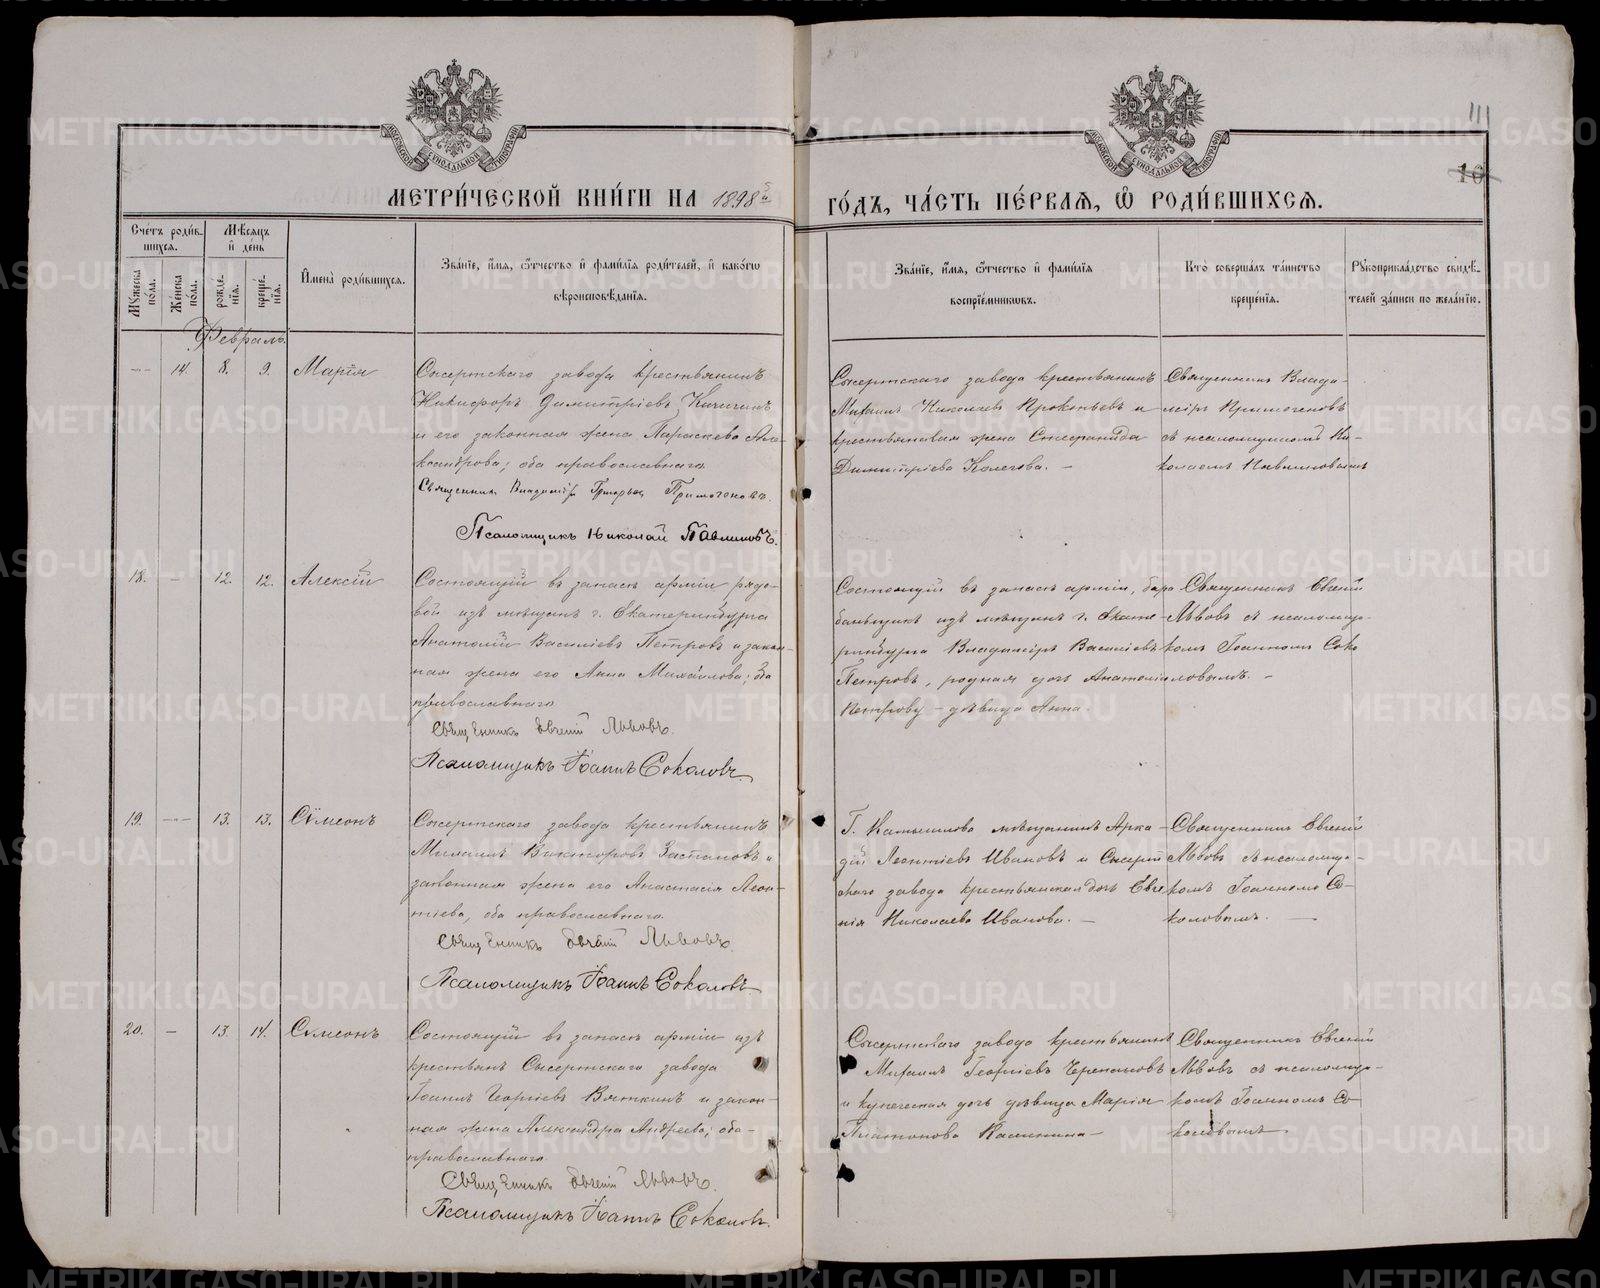 111
10
МОСКОВСКОЙ СУНОДАЛЬНОЙ ТИПОГРАФИИ
МЕТРИ́ЧЕСКОЙ КНИ́ГИ НА 1898й ГО́ДЪ, ЧА́СТЬ ПЕ́РВАЯ, Ѽ РОДИ́ВШИХСЯ.
Сче́тъ роди́в-
шихся.
Мѣ́сяцъ
и҆ де́нь
Мꙋ́жеска
по́ла.
Же́нска
по́ла.
рожде́-
нїя.
креще́-
нїя.
И҆мена̀ роди́вшихся.
Зва́нїе, и҆́мя, ѻ҆́тчество и҆ фами́лїя роди́телей, и҆ како́гѡ
вѣроисповѣ́данїя.
Зва́нїе, и҆́мя, ѻ҆́тчество и҆ фами́лїя
воспрїе́мникѡвъ.
Кто̀ соверша́лъ та́инство
креще́нїя.
Рꙋкоприкла́дство свидѣ́-
телей за́писи по жела́нїю.
Февраль
14. 8. 9. Марія
Сысертскаго завода крестьянинъ
Никифоръ Димитріевъ Кичигинъ
и его законная жена Параскева Але-
ксандрова; оба православнаго.
Священникъ Владиміръ Григорьев Примогеновъ.
Псаломщикъ Николай Павлиновъ.
Сысертскаго завода крестьянинъ
Михаилъ Николаевъ Прокопьевъ и
крестьянская жена Стефанида
Димитріева Колегова. –
Священникъ Влади-
міръ Примогеновъ
съ псаломщикомъ Ни-
колаемъ Павлиновымъ
18. – 12. 12. Алексій
Состоящій въ запасѣ арміи рядо-
вой изъ мѣщанъ г. Екатеринбурга
Анатолій Василіевъ Петровъ и закон-
ная жена его Анна Михаилова; оба
православнаго
Священникъ Евгеній Львовъ.
Псаломщикъ Іоаннъ Соколовъ
Состоящій въ запасѣ арміи, бара-
банщикъ изъ мѣщанъ г. Екате-
ринбурга Владиміръ Василіевъ
Петровъ, родная дочь Анатолія
Петрову – дѣвица Анна.
Священникъ Евгеній
Львовъ съ псаломщи-
комъ Іоанномъ Соко
ловымъ. –
19. – 13. 13. Сѵмеонъ
Сысертскаго завода крестьянинъ
Михаилъ Викторовъ Застановъ и
законная жена его Анастасія Леон-
тіева, оба православнаго.
Священникъ Евгеній Львовъ.
Псаломщикъ Іоаннъ Соколовъ.
Г. Камышлова мѣщанинъ Арка-
дій Леонтіевъ Ивановъ и Сысерт
скаго завода крестьянская дочь Евге
нія Николаева Иванова. –
Священникъ Евгеній
Львовъ съ псаломщи-
комъ Іоанномъ Со-
коловымъ. –
20. – 13. 14. Сѵмеонъ
Состоящій въ запасѣ арміи изъ
крестьянъ Сысертскаго завода
Іоаннъ Георгіевъ Вяткинъ и закон-
ная жена Александра Андреева; оба-
православнаго.
Священникъ Евгеній Львовъ.
Псаломщикъ Іоаннъ Соколовъ.
Сысертскаго завода крестьянинъ
Михаилъ Георгіевъ Черепановъ
и купеческая дочь дѣвица Марія
Платонова Калинина –
Священникъ Евгеній
Львовъ съ псаломщи-
комъ Іоанномъ Со-
коловымъ
METRIKI.GASO-URAL.RU